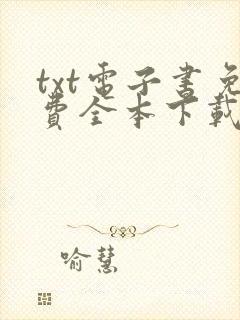 txt電子書免
費全本下載
喻慧